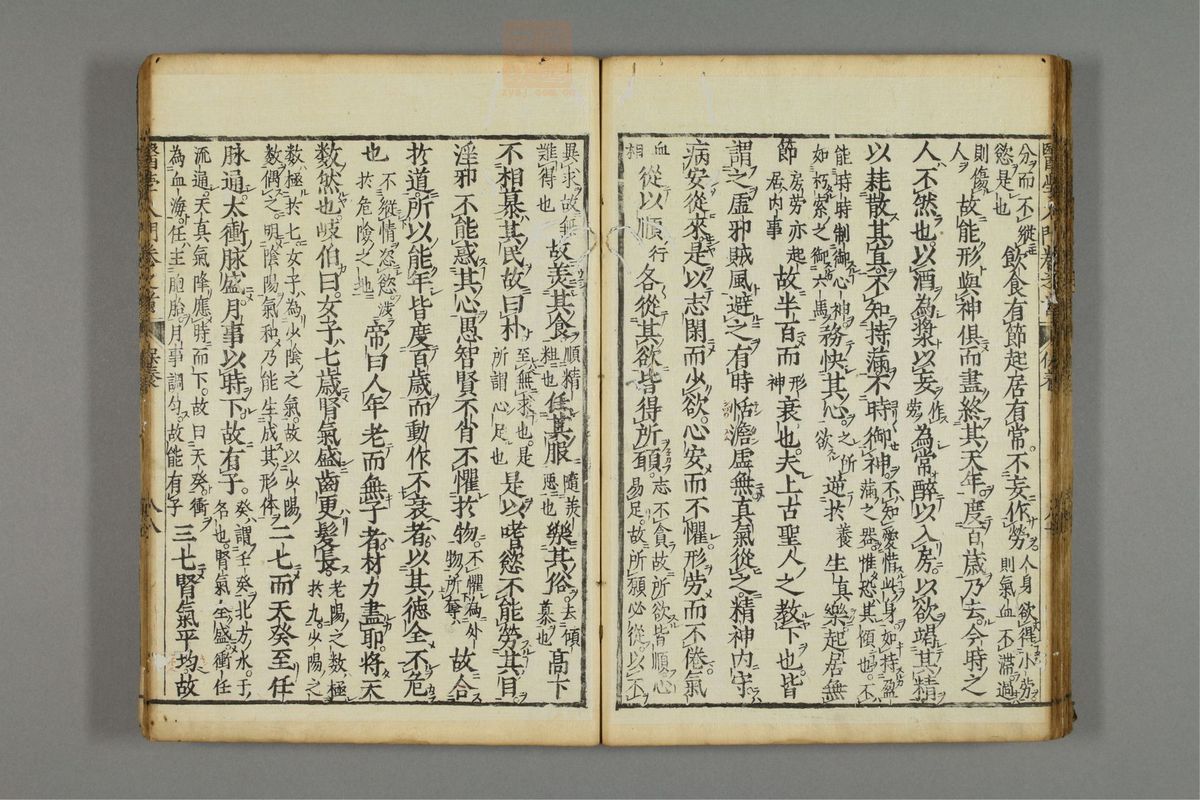 分而不縱
慾是也
飲食有節起居有常不妄作勞
人身欲得小勞
則氣血不滯過
則傷
人
故能形與神俱而盡終其天年度百歲乃去今時之
人不然也以酒為漿以妄
作勞
為常醉以入房以欲竭其精
以耗散其真不知持滿不時御神
不知愛惜此身如持盈
滿之器惟恐其傾也不
能時時制御心神
如朽索之御六馬
務快其心
之所
欲
逆於
養
生真樂起居無
節
房勞亦起
居內事
故半百而
形
神
衰也夫上古聖人之教下也皆
謂之虛邪賊風避之有時恬澹虛無真氣從之精神內守
病安從來是以志閑而少欲心安而不懼形勞而不倦氣
血
相
從以順
行
各從其欲皆得所願
志不貪故所欲皆順心
易足故所願必從以不
異求故無
難得也
故美其食
順精
粗也
任其服
隨羨
惡也
樂其俗
去傾
慕也
高下
不相慕其民故曰朴
至無求也是
所謂心足也
是以嗜慾不能勞其目
淫邪不能惑其心愚智賢不肖不懼於物
不懼為外
物所奪
故合
於道所以能年皆度百歲而動作不衰者以其德全不危
也
不縱情恣慾涉
於危險之地
帝曰人年老而無子者材力盡耶將天
數然也岐伯曰女子七歲腎氣盛齒更髮長
老陽之數極
於九少陽之
數極於七女子為少陰之氣故以少陽
數偶之明陰陽氣和乃能生成其形体
二七而天癸至任
脉通太衝脉盛月事以時下故有子
癸謂壬癸北方水干
名也腎氣全盛衝任
流通天真氣降應時而下故曰天癸衝
為血海任主胞胎月事調勻故能有子
三七腎氣平均故
醫學入門卷之首
保養
八八